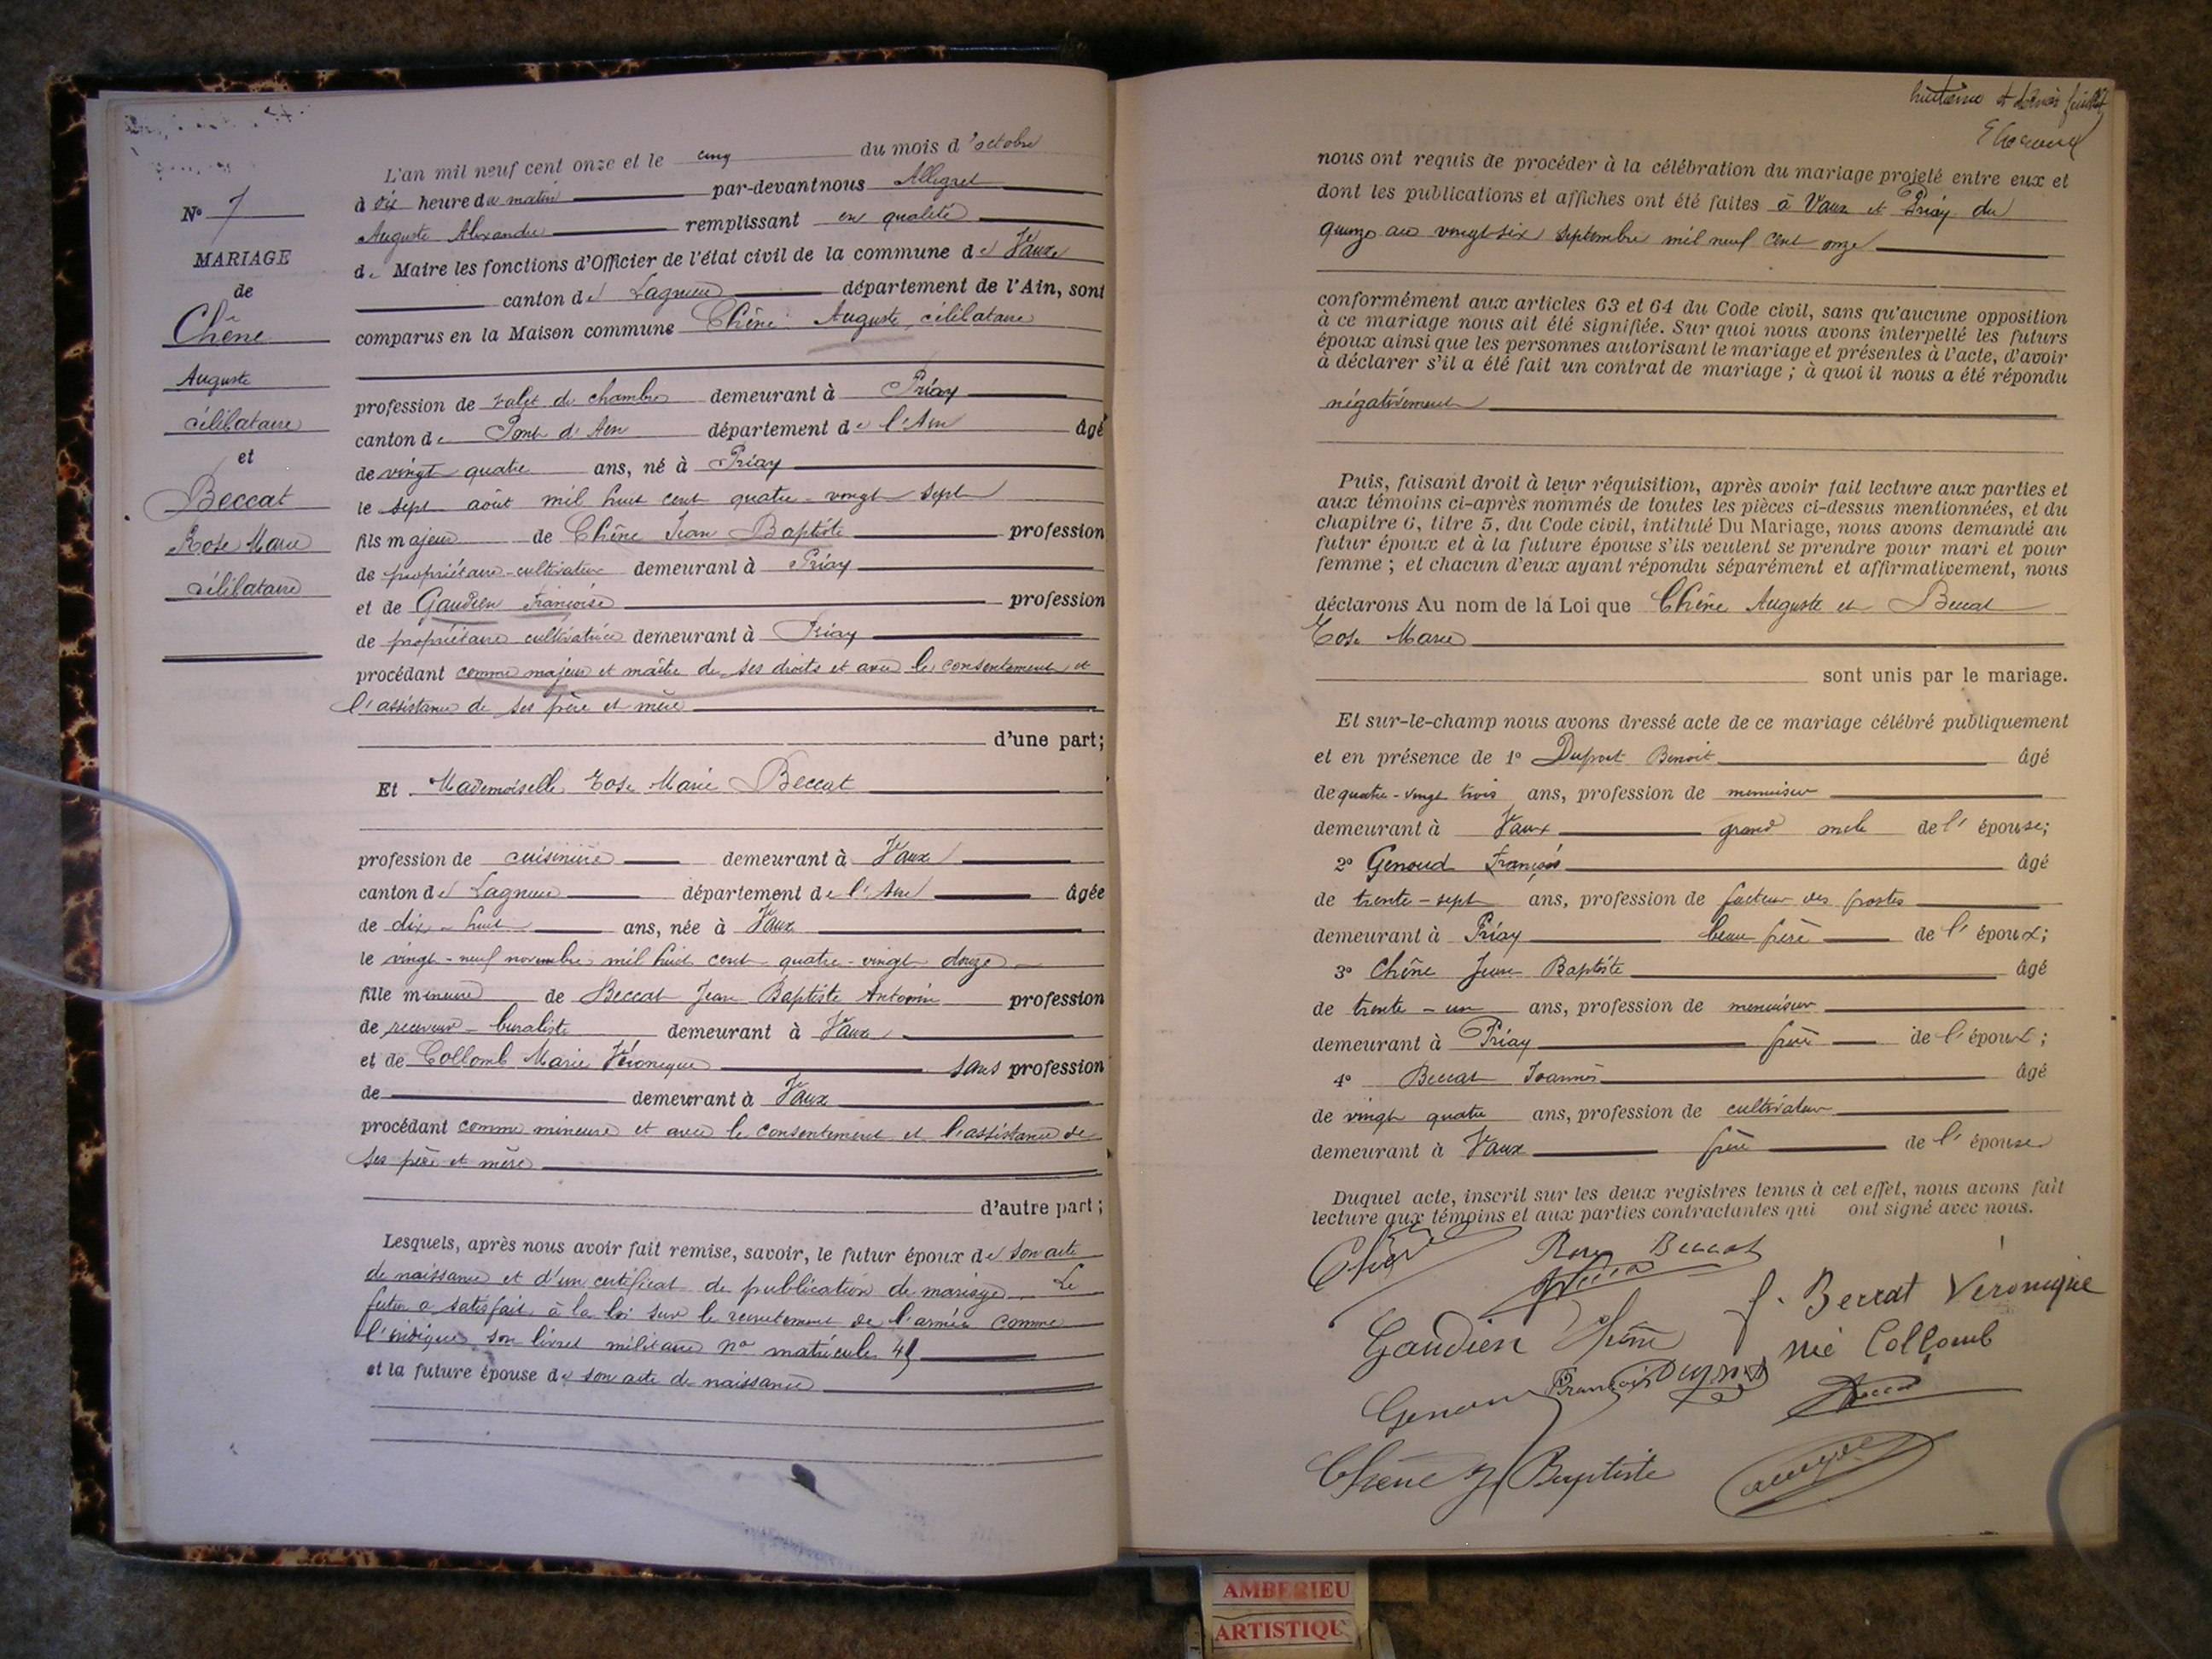 N° 7
MARIAGE
de
Chêne
Auguste
célibataire
et
Beccat
Rose Marie
célibataire
L'an mil neuf cent onze et le cinq du mois d'octobre
à dix heure du matin par-devant nous Allegret
Auguste Alexandre remplissant en qualité
de Maire les fonctions d'Officier de l'état civil de la commune de Vaux
canton de Lagnieu département de l'Ain, sont
comparus en la Maison commune Chêne Auguste, célibataire
profession de valet de chambre demeurant à Priay
canton de Pont d'Ain département de l'Ain âgé
de vingt quatre ans, né à Priay
le sept août mil huit cent quatre-vingt sept
fils majeur de Chêne Jean Baptiste profession
de propriétaire-cultivateur demeurant à Priay
et de Gaudien Françoise profession
de propriétaire cultivatrice demeurant à Priay
procédant comme majeur et maître de ses droits et avec le consentement et
l'assistance de ses père et mère
d'une part;
Et Mademoiselle Rose Marie Beccat
profession de cuisinière demeurant à Vaux
canton de Lagnieu département de l'Ain âgée
de dix-huit ans, née à Vaux
le vingt-neuf novembre mil huit cent quatre-vingt douze
fille mineure de Beccat Jean Baptiste Antonin profession
de receveur-buraliste demeurant à Vaux
et de Collomb Marie Véronique sans profession
de demeurant à Vaux
procédant comme mineure et avec le consentement et l'assistance de
ses père et mère
d'autre part;
Lesquels, après nous avoir fait remise, savoir, le futur époux de son acte
de naissance et d'un certificat de publication de mariage. Le
futur a satisfait à la loi sur le recrutement de l'armée comme
l'indique son livret militaire n° matricule
et la future épouse de son acte de naissance
huitième et dernier feuillet
nous ont requis de procéder à la célébration du mariage projeté entre eux et
dont les publications et affiches ont été faites à Vaux et Priay du
quinze au vingt-six septembre mil neuf cent onze
conformément aux articles 63 et 64 du Code civil, sans qu'aucune opposition
à ce mariage nous ait été signifiée. Sur quoi nous avons interpellé les futurs
époux ainsi que les personnes autorisant le mariage et présentes à l'acte, d'avoir
à déclarer s'il a été fait un contrat de mariage; à quoi il nous a été répondu
négativement
Puis, faisant droit à leur réquisition, après avoir fait lecture aux parties et
aux témoins ci-après nommés de toutes les pièces ci-dessus mentionnées, et du
chapitre 6, titre 5, du Code civil, intitulé Du Mariage, nous avons demandé au
futur époux et à la future épouse s'ils veulent se prendre pour mari et pour
femme; et chacun d'eux ayant répondu séparément et affirmativement, nous
déclarons Au nom de la Loi que Chêne Auguste et Beccat
Rose Marie
sont unis par le mariage.
Et sur-le-champ nous avons dressé acte de ce mariage célébré publiquement
et en présence de 1° Duprat Benoit âgé
de quatre-vingt trois ans, profession de menuisier
demeurant à Vaux grand oncle de l'épouse;
2° Genoud François âgé
de trente-sept ans, profession de facteur des postes
demeurant à Priay beau frère de l'époux;
3° Chêne Jean Baptiste âgé
de trente-un ans, profession de menuisier
demeurant à Priay frère de l'époux;
4° Beccat Joannès âgé
de vingt quatre ans, profession de cultivateur
demeurant à Vaux frère de l'épouse
Duquel acte, inscrit sur les deux registres tenus à cet effet, nous avons fait
lecture aux témoins et aux parties contractantes qui ont signé avec nous.
Chêne Rose Beccat
Gaudien Chêne f. Beccat Véronique
née Collomb
François
Chêne J Baptiste
AMBERIEU
ARTISTIQU